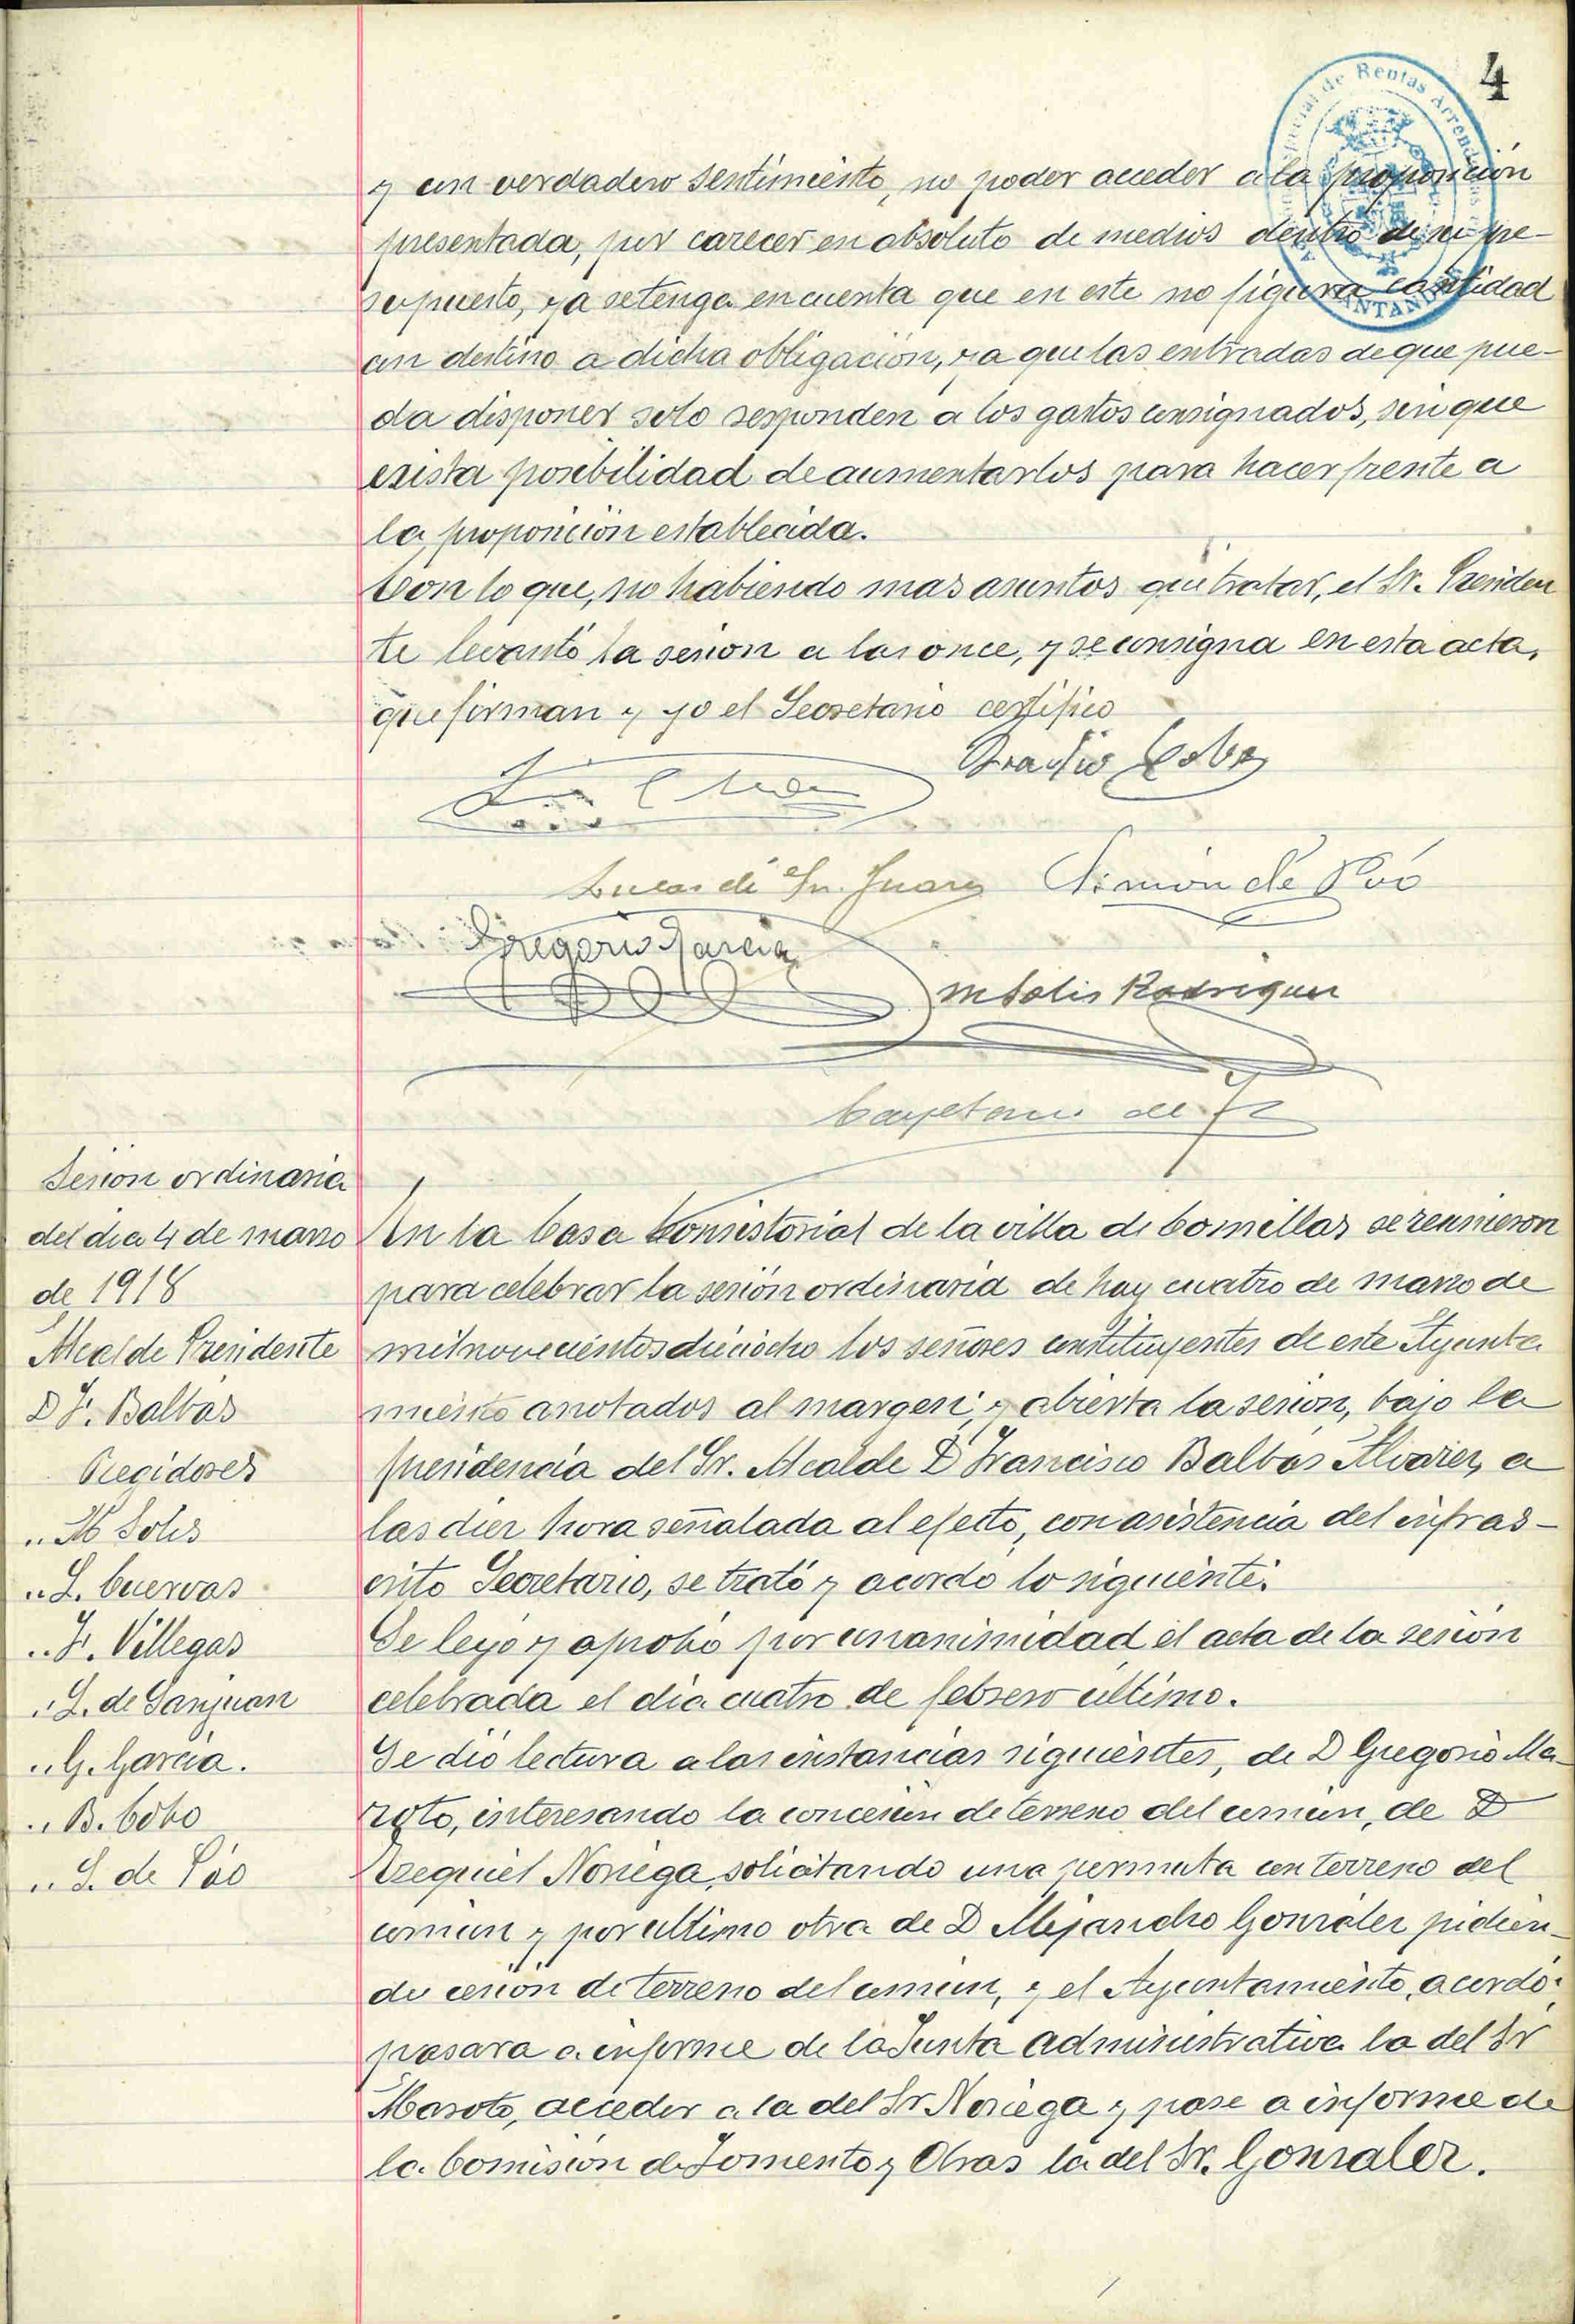 4
de Rentas Arrenda
SANTANDER
y con verdadero sentimiento, no poder acceder a la proposición
presentada, por carecer en absoluto de medios dentro de su pre-
supuesto, ya se tenga en cuenta que en este no figura cantidad
con destino a dicha obligación, ya que las entradas de que pue-
da disponer solo responden a los gastos consignados, sin que
exista posibilidad de aumentarlos para hacer frente a
la proposición establecida.
Con lo que, no habiendo mas asuntos que tratar, el Sr. Presiden
te levantó la sesion a las once, y se consigna en esta acta,
que firman y yo el Secretario certifico
Braulio Cobo
Lucas de Sn. Juan Simón de Póo
Gregorio Garcia
M Solis Rodriguez
Cayetano de
Sesion ordinaria
del dia 4 de marzo
de 1918
Alcalde Presidente
D F. Balbás
Regidores
" M Solis
" L. Cuervas
" F. Villegas
" L. de Sanjuan
" G. Garcia.
" B. Cobo
" S. de Póo
En la Casa Consistorial de la villa de Comillas se reunieron
para celebrar la sesión ordinaria de hoy cuatro de marzo de
mil novecientos dieciocho los señores constituyentes de este Ayunta
miento anotados al margen; y abierta la sesion, bajo la
presidencia del Sr. Alcalde D Francisco Balbás Alvarez, a
las diez hora señalada al efecto, con asistencia del infras-
crito Secretario, se trató y acordó lo siguiente:
Se leyó y aprobó por unanimidad el acta de la sesión
celebrada el dia cuatro de febrero último.
Se dió lectura a las instancias siguientes, de D Gregorio Ma-
roto, interesando la concesión de terreno del comun, de D
Ezequiel Noriega, solicitando una permuta con terreno del
comun y por ultimo otra de D Alejandro González pidien-
do cesión de terreno del comun, y el Ayuntamiento, acordó:
pasara a informe de la Junta administrativa la del Sr
Maroto, acceder a la del Sr Noriega y pase a informe de
la Comisión de Fomento y Obras la del Sr. Gonzalez.